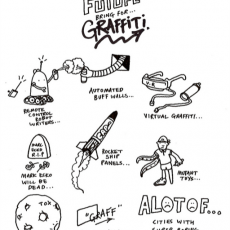 FUTURE
BRING FOR...
GRAFFITI.
REMOTE
CONTROL
ROBOT
WRITERS...
AUTOMATED
BUFF WALLS...
VIRTUAL GRAFFITI...
MARC
ECKO
R.I.P
MARK ECKO
WILL BE
DEAD...
ROCKET
SHIP
PANELS...
MUTANT
TOYS...
TOX
"GRAFF"
ALOTOF...
CITIES WITH